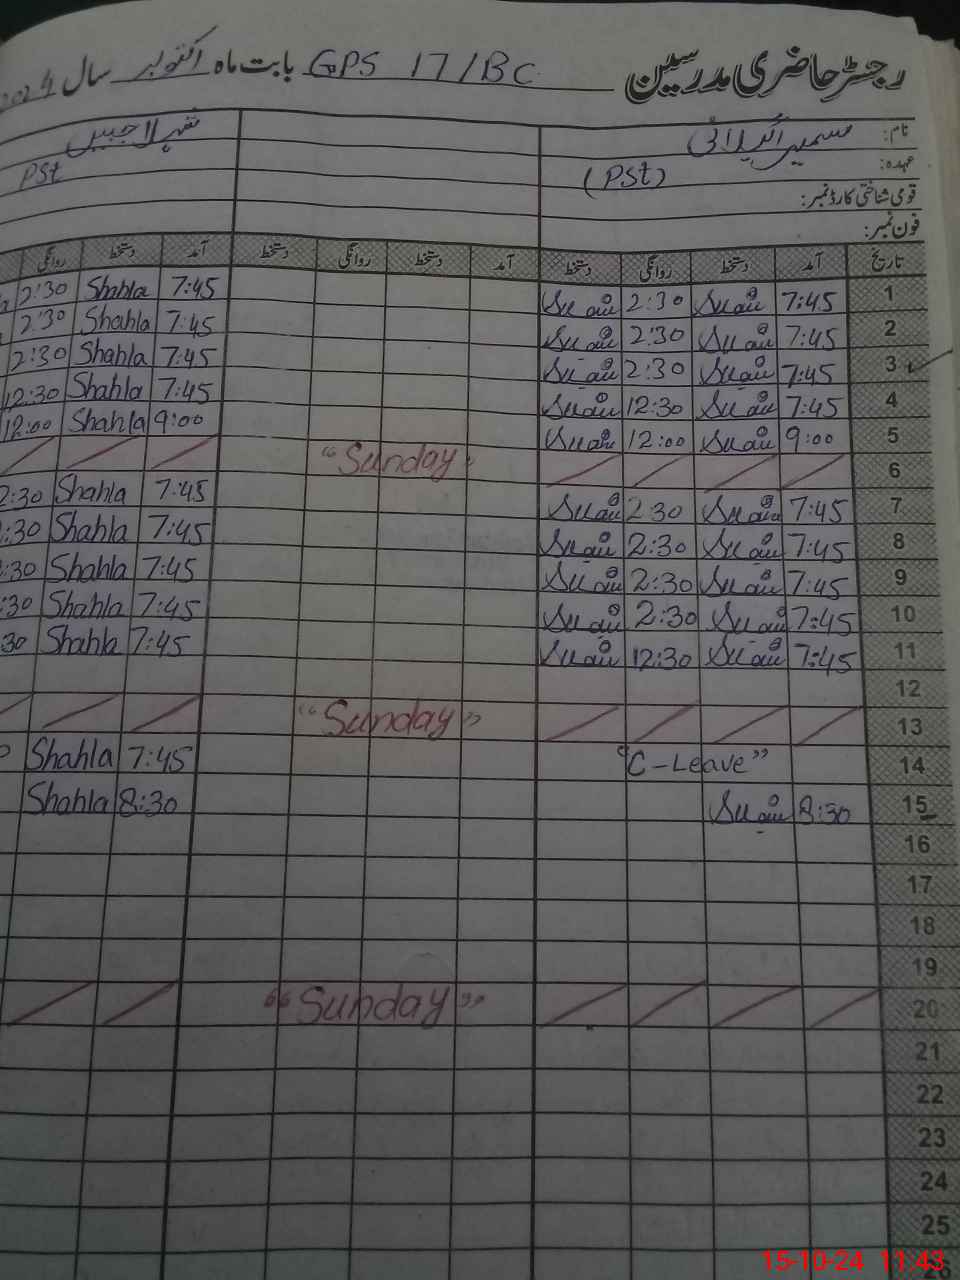 رجسٹر حاضری مدرسین GPS 17/BC بابت ماہ اکتوبر سال 2024
نام: سمیرا گیلانی
عہدہ: (PSt) PSt
قومی شناختی کارڈ نمبر:
فون نمبر:
تاریخ آمد دستخط روانگی دستخط آمد دستخط روانگی دستخط آمد دستخط روانگی
1 7:45 2:30 7:45 Shahla 2:30
2 7:45 2:30 7:45 Shahla 2:30
3 7:45 2:30 7:45 Shahla 2:30
4 7:45 12:30 7:45 Shahla 12:30
5 9:00 12:00 9:00 Shahla 12:00
6 "Sunday"
7 7:45 2:30 7:45 Shahla 2:30
8 7:45 2:30 7:45 Shahla :30
9 7:45 2:30 7:45 Shahla :30
10 7:45 2:30 7:45 Shahla :30
11 7:45 12:30 7:45 Shahla 30
12
13 "Sunday"
14 "C-Leave" 7:45 Shahla
15 8:30 8:30 Shahla
16
17
18
19
20 "Sunday"
21
22
23
24
25
15-10-24 11:43